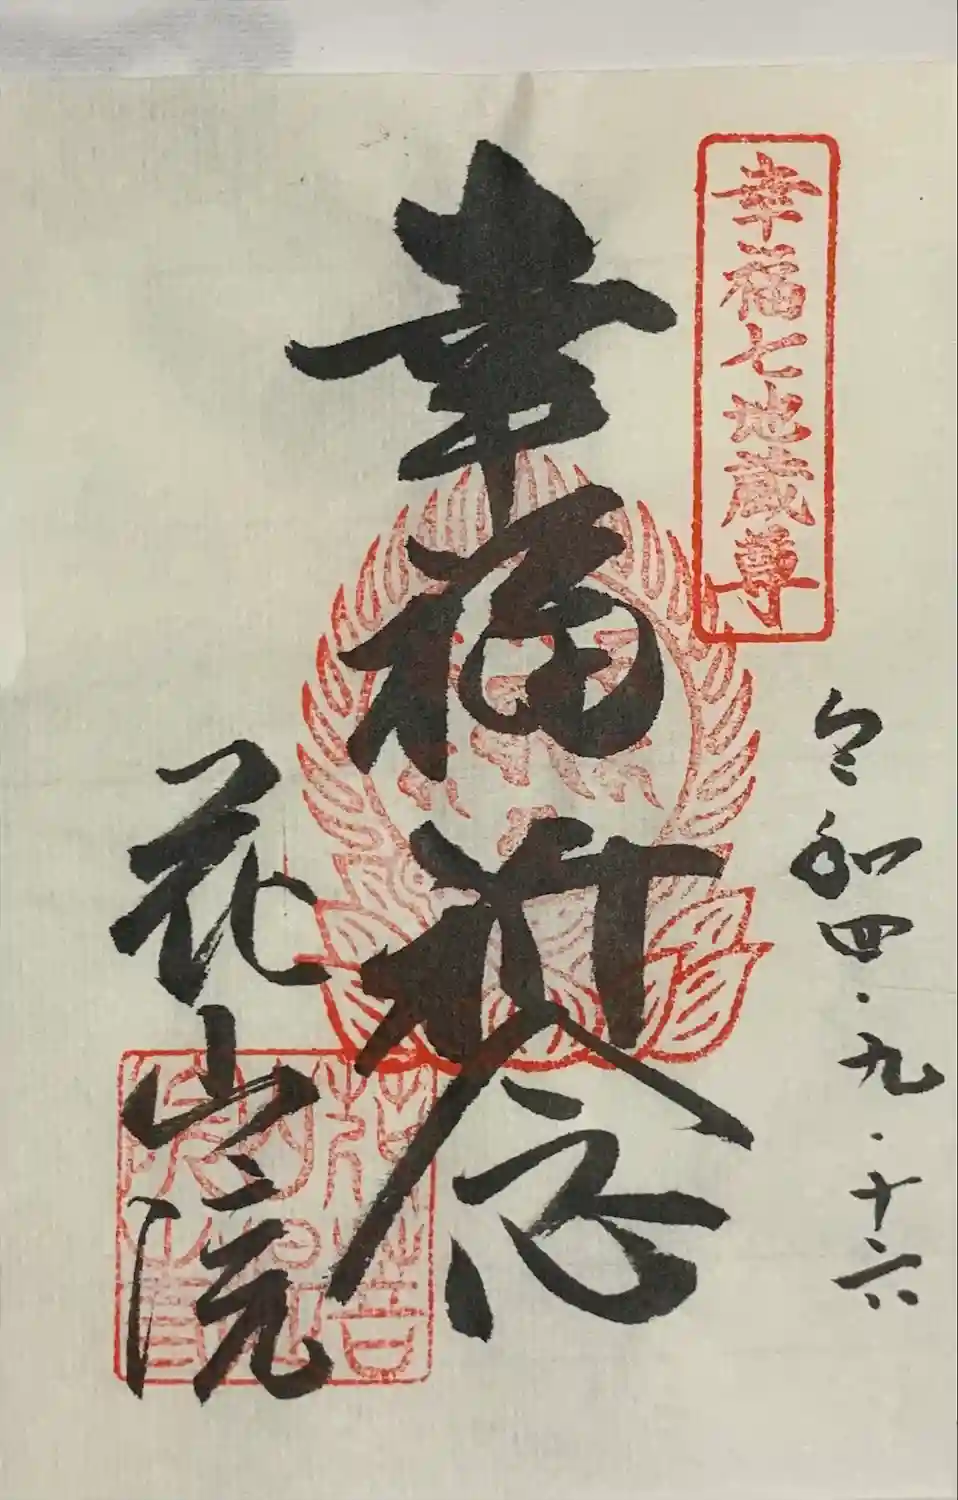 幸福七地蔵尊
令和四・九・十六
幸福祈念
花山院